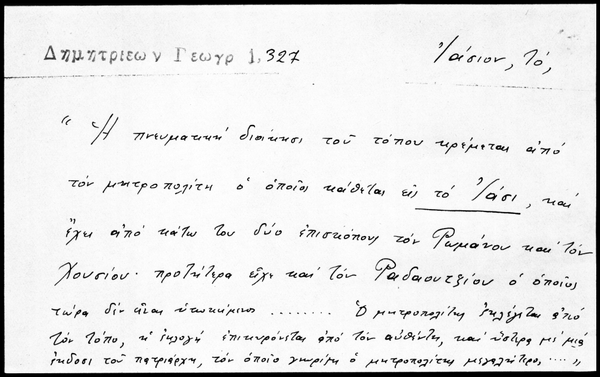 Δημητριεων Γεωγρ 1,327
Ἰάσιον, τό,
"Ἡ πνευματική διοίκησι τοῦ τόπου κρέμεται ἀπό
τόν μητροπολίτη ὁ ὁποῖος κάθεται εἰς τό Ἰάσι, καί
ἔχει ἀπό κάτω του δύο ἐπισκόπους τόν Ρωμάνου καί τόν
Χουσίου· προτήτερα εἶχε καί τόν Ραδαουτζίου ὁ ὁποῖος
τώρα δέν εἶναι ὑτωκείμενος ........ Ὁ μητροπολίτης ἐκλέγεται ἀπό
τόν τόπο, ἡ ἐκλογή ἐπικυρόνεται ἀπό τόν αὐθέντη, καί ὕστερα μέ μιά
ἔκδοσι τοῦ πατριάρχη, τόν ὁποῖο γνωρίζει ὁ μητροπολίτης μεγαλήτερο, ...."